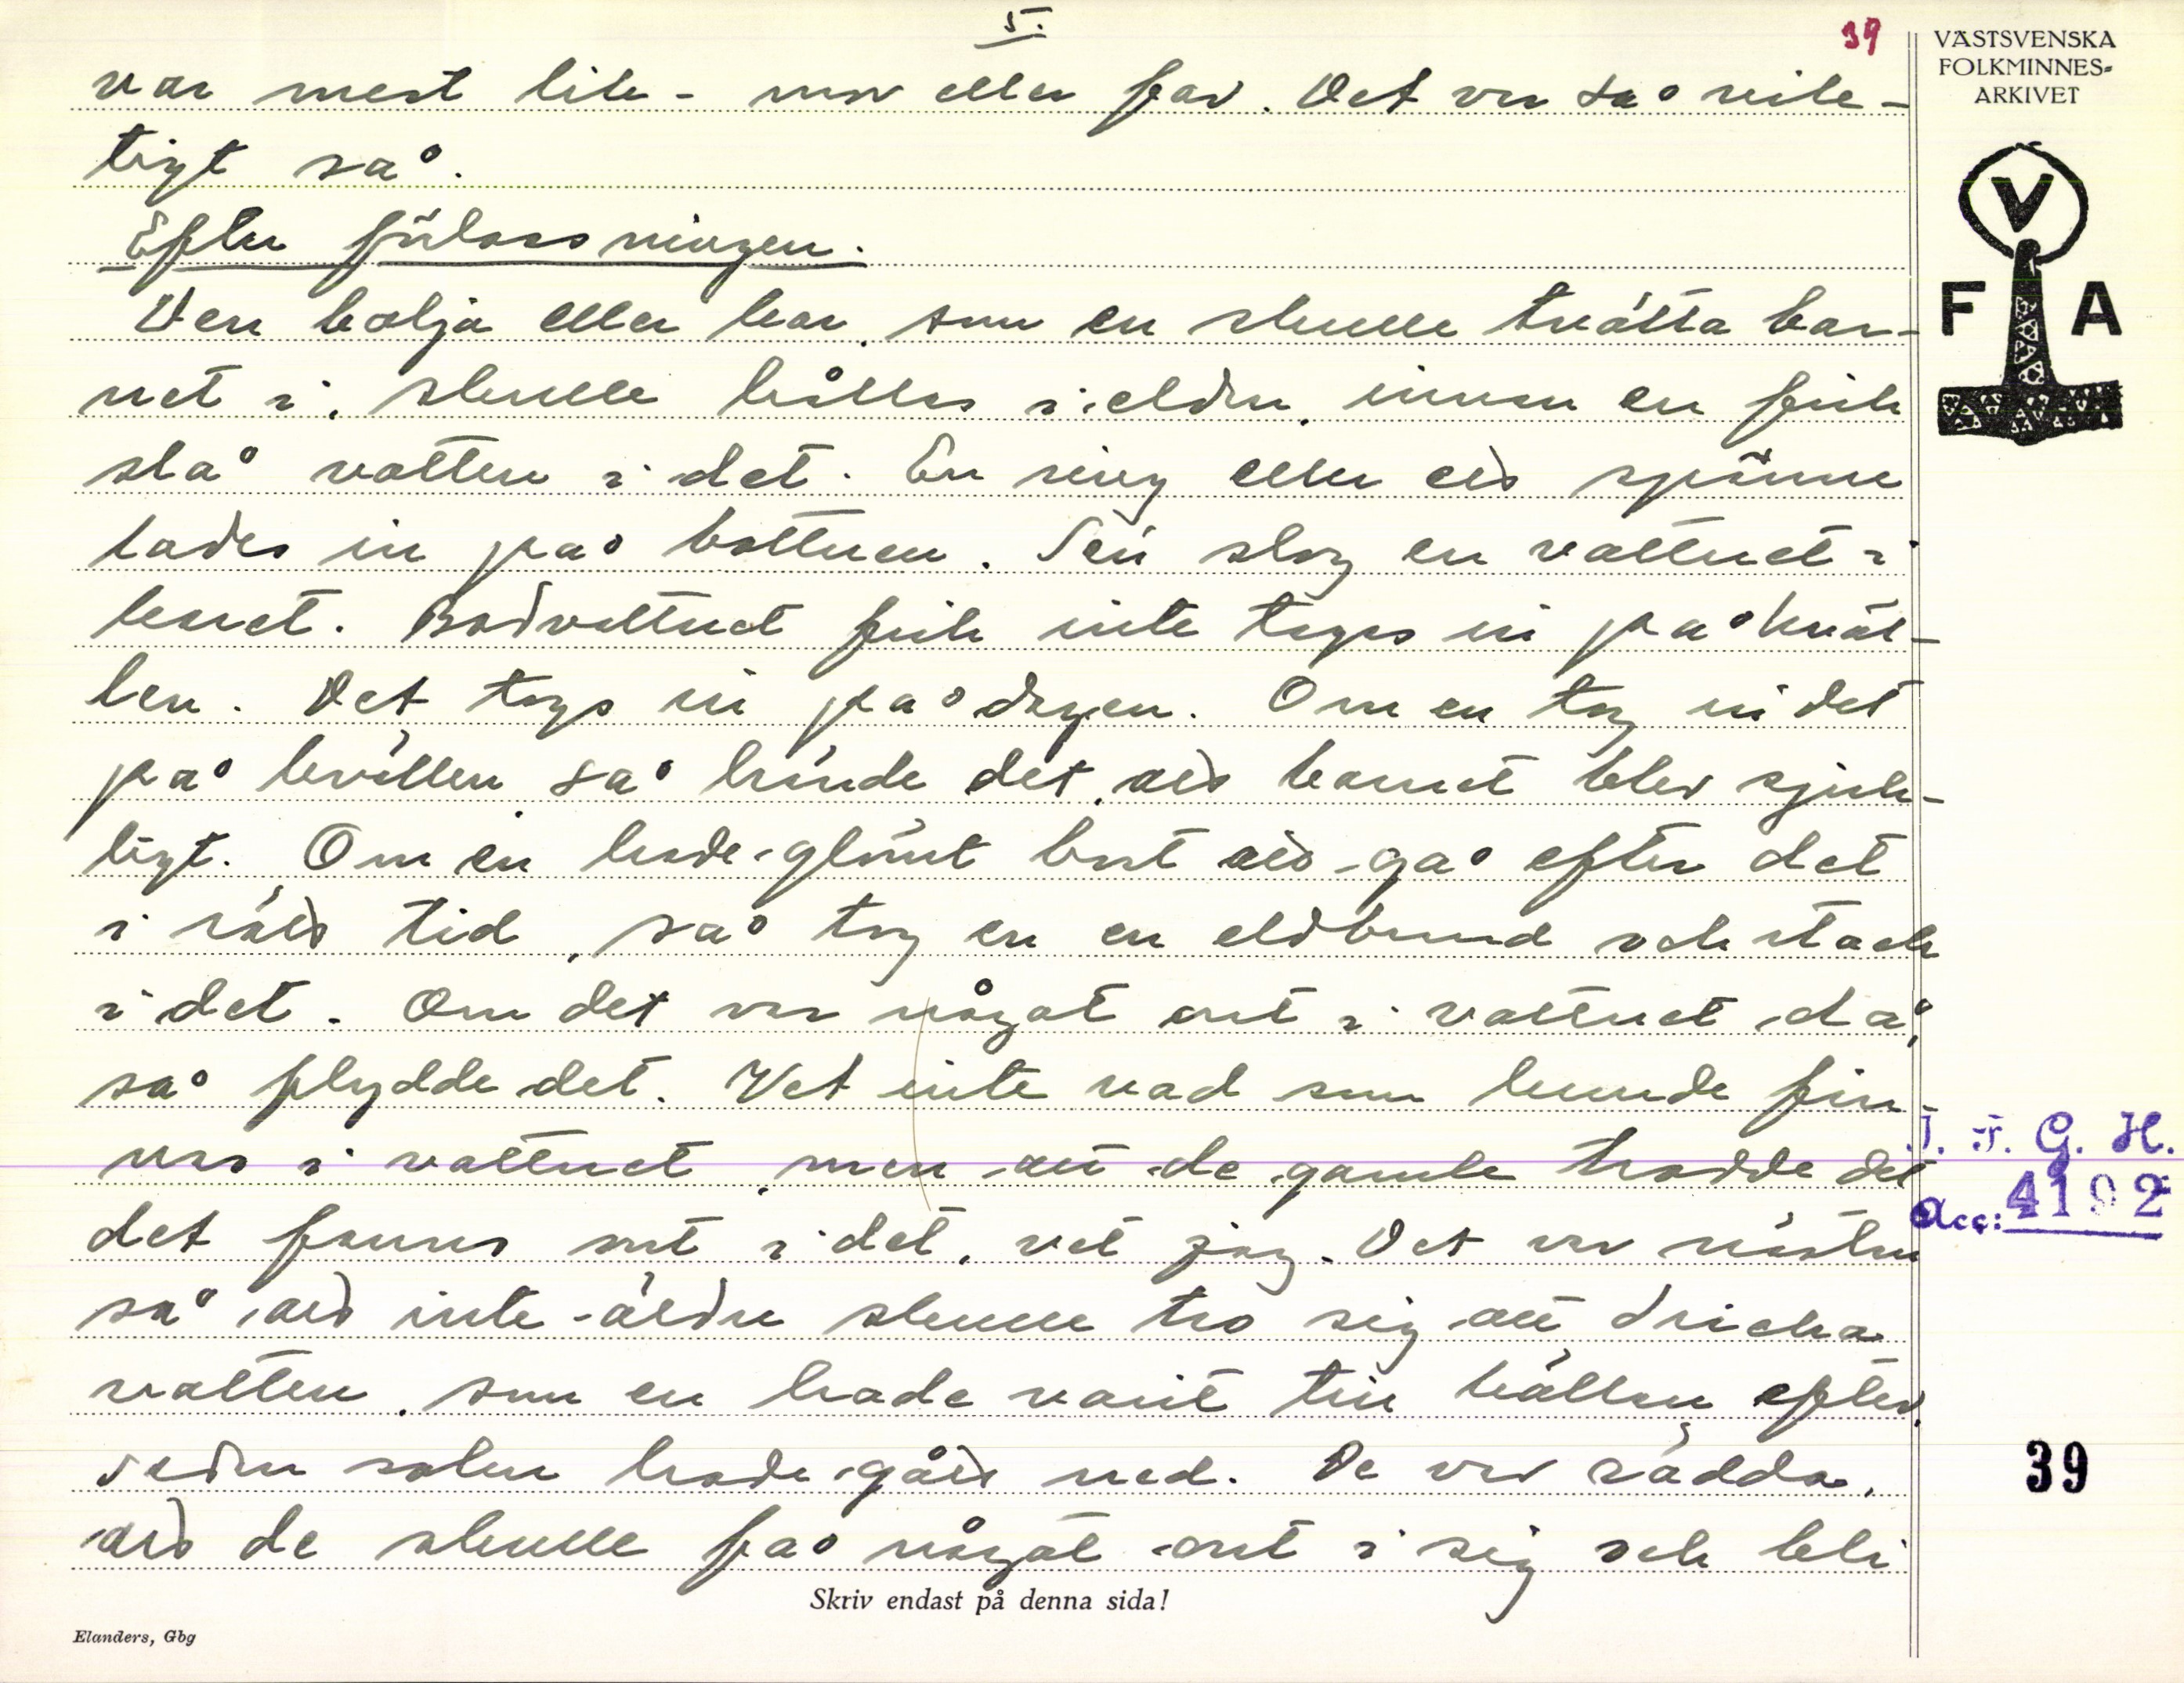 5.
39
VÄSTSVENSKA
FOLKMINNES-
ARKIVET
V
F A
var mest lik - mor eller far. Det var så rik-
tigt så.
Efter förlossningen.
Den balja eller kar, som en skulle tvätta bar-
net i, skulle hållas i elden, innan en fick
slå vatten i det. En ring eller ett spänne
lades in på bottnen. Sen slog en vattnet i
karet. Badvattnet fick inte tagas in på kväl-
len. Det togs in på dagen. Om en tog in det
på kvällen, så hände det, att barnet blev sjuk-
ligt. Om en hade glömt bort att gå efter det
i rätt tid, så tog en en eldbrand och stack
i det. Om det var något ont i vattnet då,
så flydde det. Vet inte vad som kunde fin-
nas i vattnet, men att de gamle trodde det
det fanns ont i det, vet jag. Det var nästan
så att inte äldre skulle tro sig att dricka
vatten, som en hade varit till källan efter,
sedan solen hade gått ned. De var rädda,
att de skulle få något ont i sig och bli
I. F. G. H.
Acc: 4192
39
Skriv endast på denna sida!
Elanders, Gbg